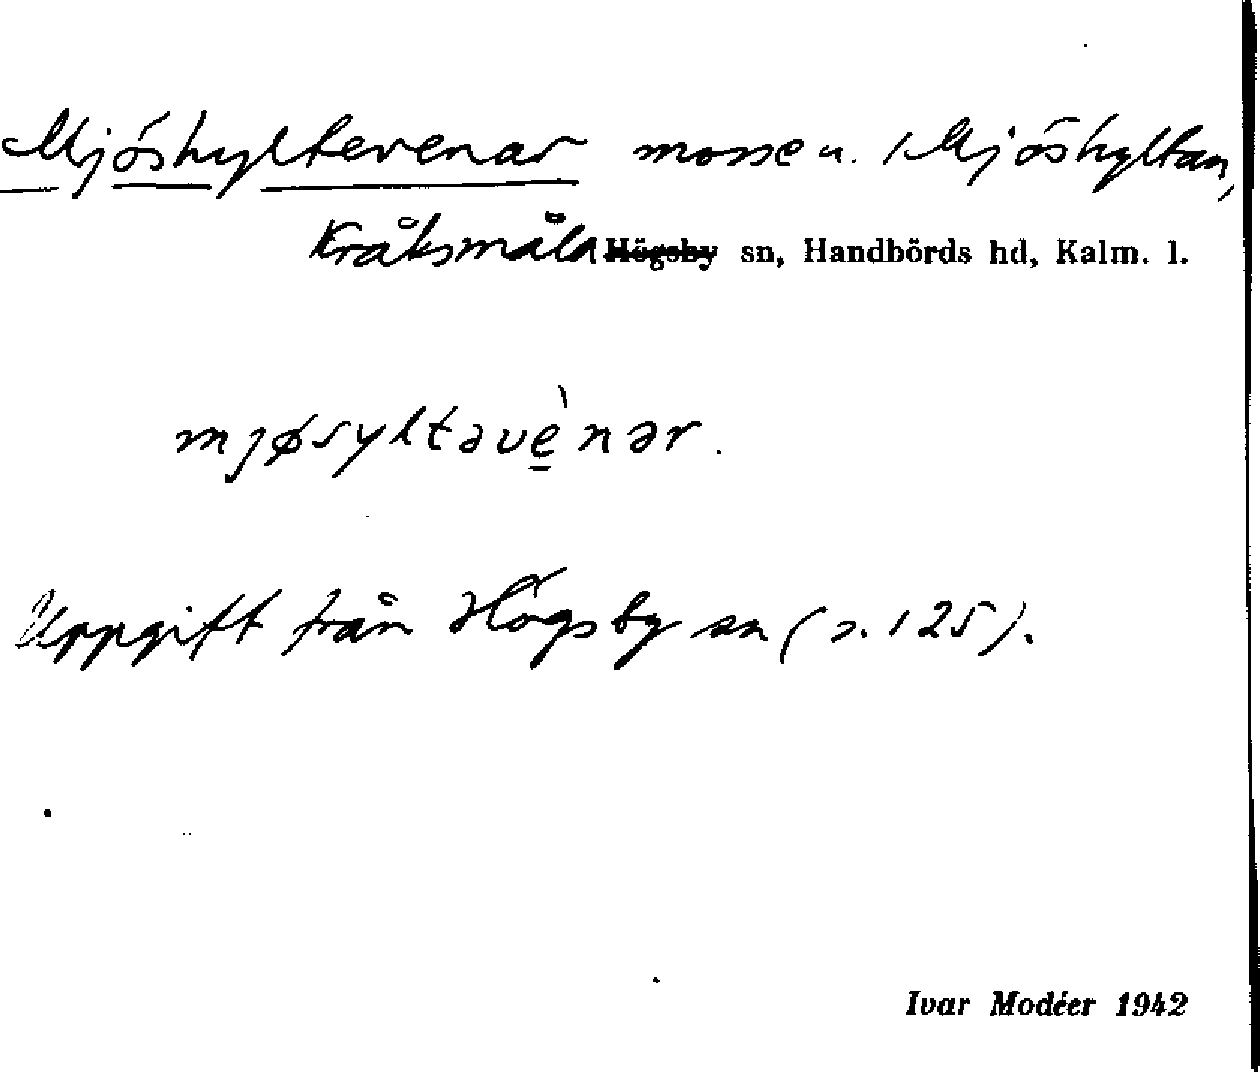 Mjöshyltevenar mosse u. Mjöshyltan,
Kråksmåla ~~Högsby~~ sn, Handbörds hd, Kalm. l.
mjøsyltəvè̠nər.
Uppgift från Högsby sn (s. 125).
Ivar Modéer 1942